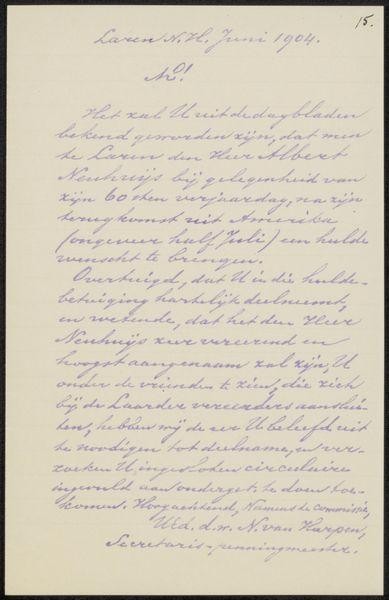 15.
Laren N.H. Juni 1904.
M!
Het zal U uit de dagbladen
bekend geworden zijn, dat men
te Laren den Heer Albert
Neuhuijs bij gelegenheid van
zijn 60sten verjaardag, na zijn
terugkomst uit Amerika
(ongeveer half Juli) een hulde
wenscht te brengen.
Overtuigd, dat U in die hulde-
betuiging hartelijk deelneemt,
en wetende, dat het den Heer
Neuhuijs zeer vereerend en
hoogst aangenaam zal zijn, U
onder de vrienden te zien, die zich
bij de Laarder vereerders aanslui-
ten, hebben wij de eer U beleefd uit
te noodigen tot deelname, en ver-
zoeken U, ingesloten circulaire
ingevuld aan onderget. te doen toe-
komen. Hoogachtend, Namens de commissie,
Ued. d.w. N. van Harpen,
Secretaris-penningmeester.